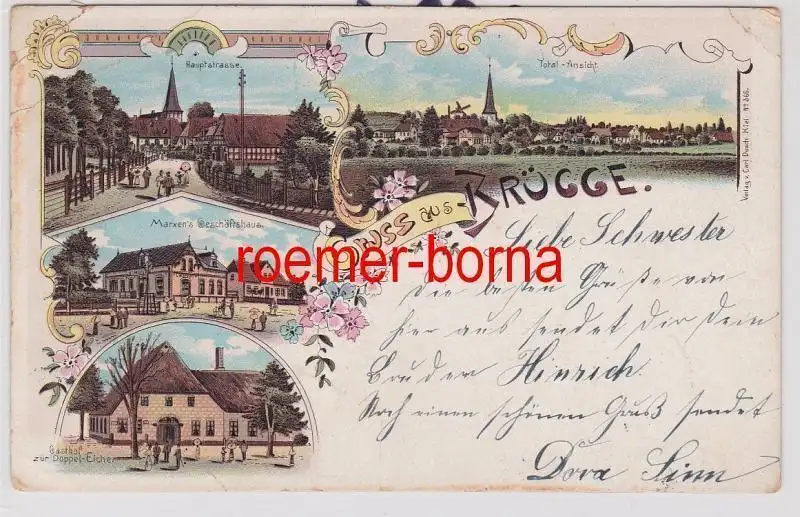 Hauptstrasse.
Total-Ansicht
Verlag v. Carl Dosch. Kiel Nº 366.
GRUSS aus BRÜGGE.
Marxen's Geschäftshaus.
roemer-borna
Gasthof
zur Doppel-Eiche
Liebe Schwester
die besten Grüße von
hier aus sendet dir dein
Bruder Hinrich
Noch einen schönen Gruß sendet
Dora